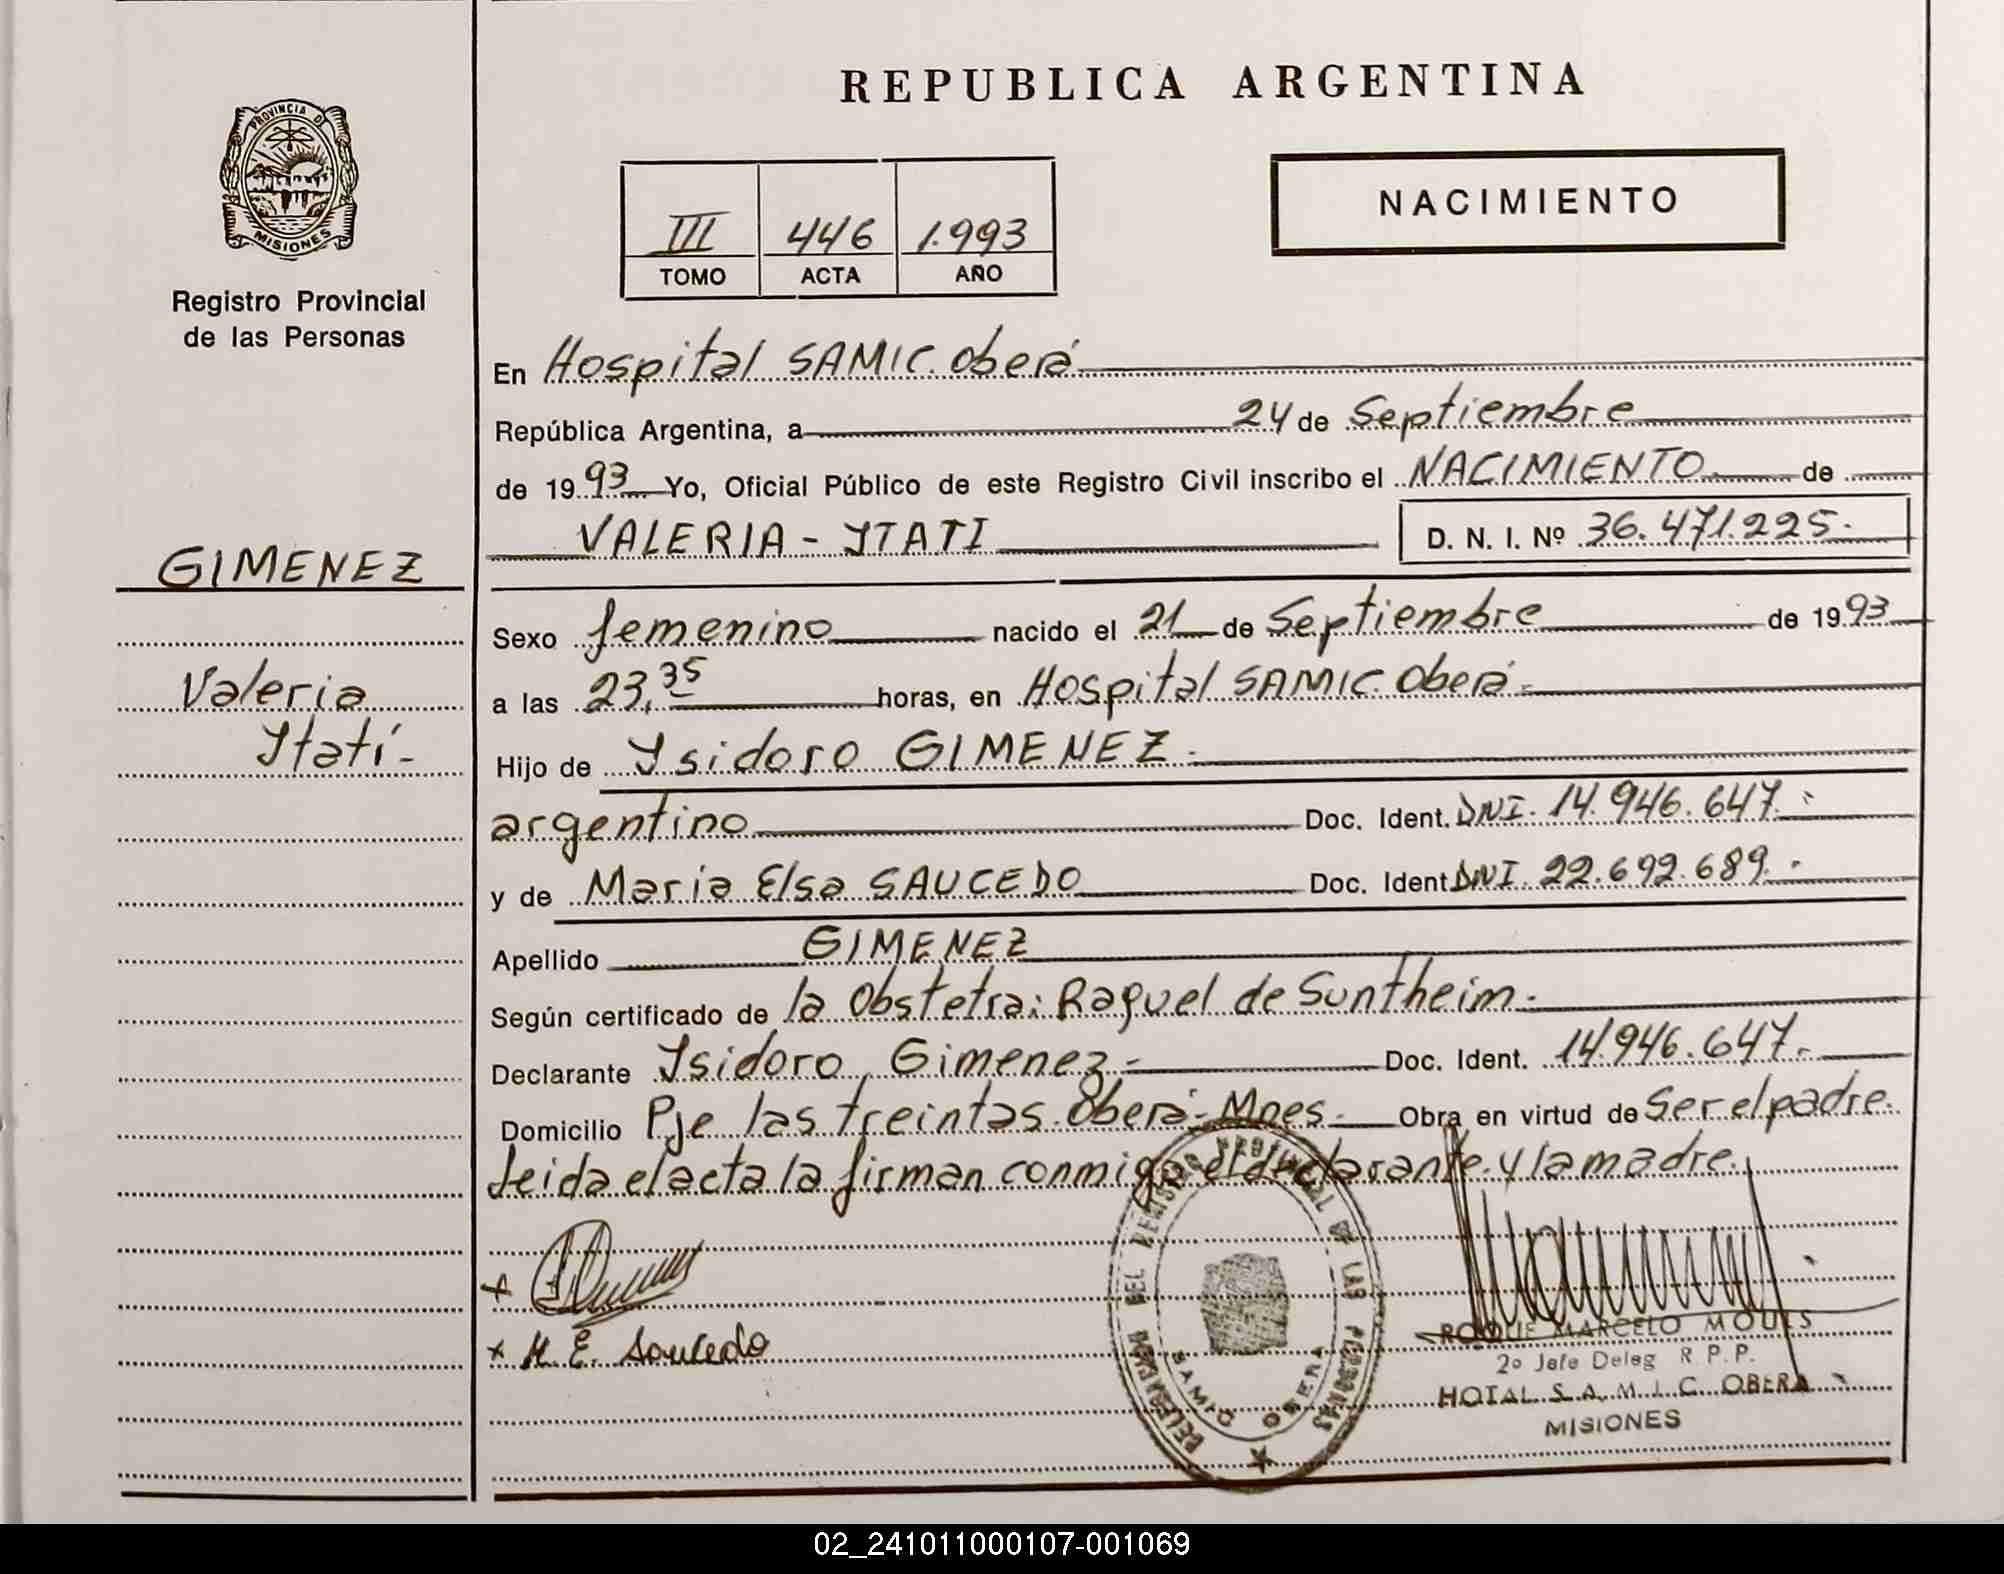 REPUBLICA ARGENTINA
PROVINCIA DE
MISIONES
Registro Provincial
de las Personas
NACIMIENTO
III 446 1.993
TOMO ACTA AÑO
En Hospital SAMIC. Oberá
República Argentina, a 24 de Septiembre
de 19 93 Yo, Oficial Público de este Registro Civil inscribo el NACIMIENTO de
VALERIA - YTATI D. N. I. Nº 36.471.225.
GIMENEZ
Valeria
Ytatí-
Sexo femenino nacido el 21 de Septiembre de 19 93
a las 23,35 horas, en Hospital SAMIC. Oberá-
Hijo de Ysidoro GIMENEZ.
argentino Doc. Ident. DNI. 14.946.647.
y de Maria Elsa SAUCEDO Doc. Ident. DNI. 22.692.689.
Apellido GIMENEZ
Según certificado de la Obstetra: Raquel de Suntheim.
Declarante Ysidoro Gimenez - Doc. Ident. 14.946.647.
Domicilio Pje las treintas. Oberá- Mnes. Obra en virtud de Ser el padre.
Leida el acta la firman conmigo el declarante y la madre.
x M. E. Saucedo
DELEGACION DEL REGISTRO PROVINCIAL DE LAS PERSONAS
SAMIC OBERA
ROQUE MARCELO MOULS
2º Jefe Deleg R. P. P.
HOTAL S. A. M. I. C. OBERA
MISIONES
02_241011000107-001069